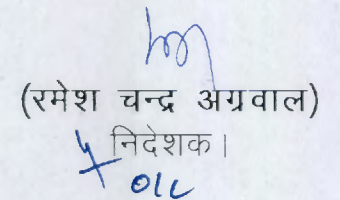 (रमेश चन्द्र अग्रवाल)
निदेशक।
O/C